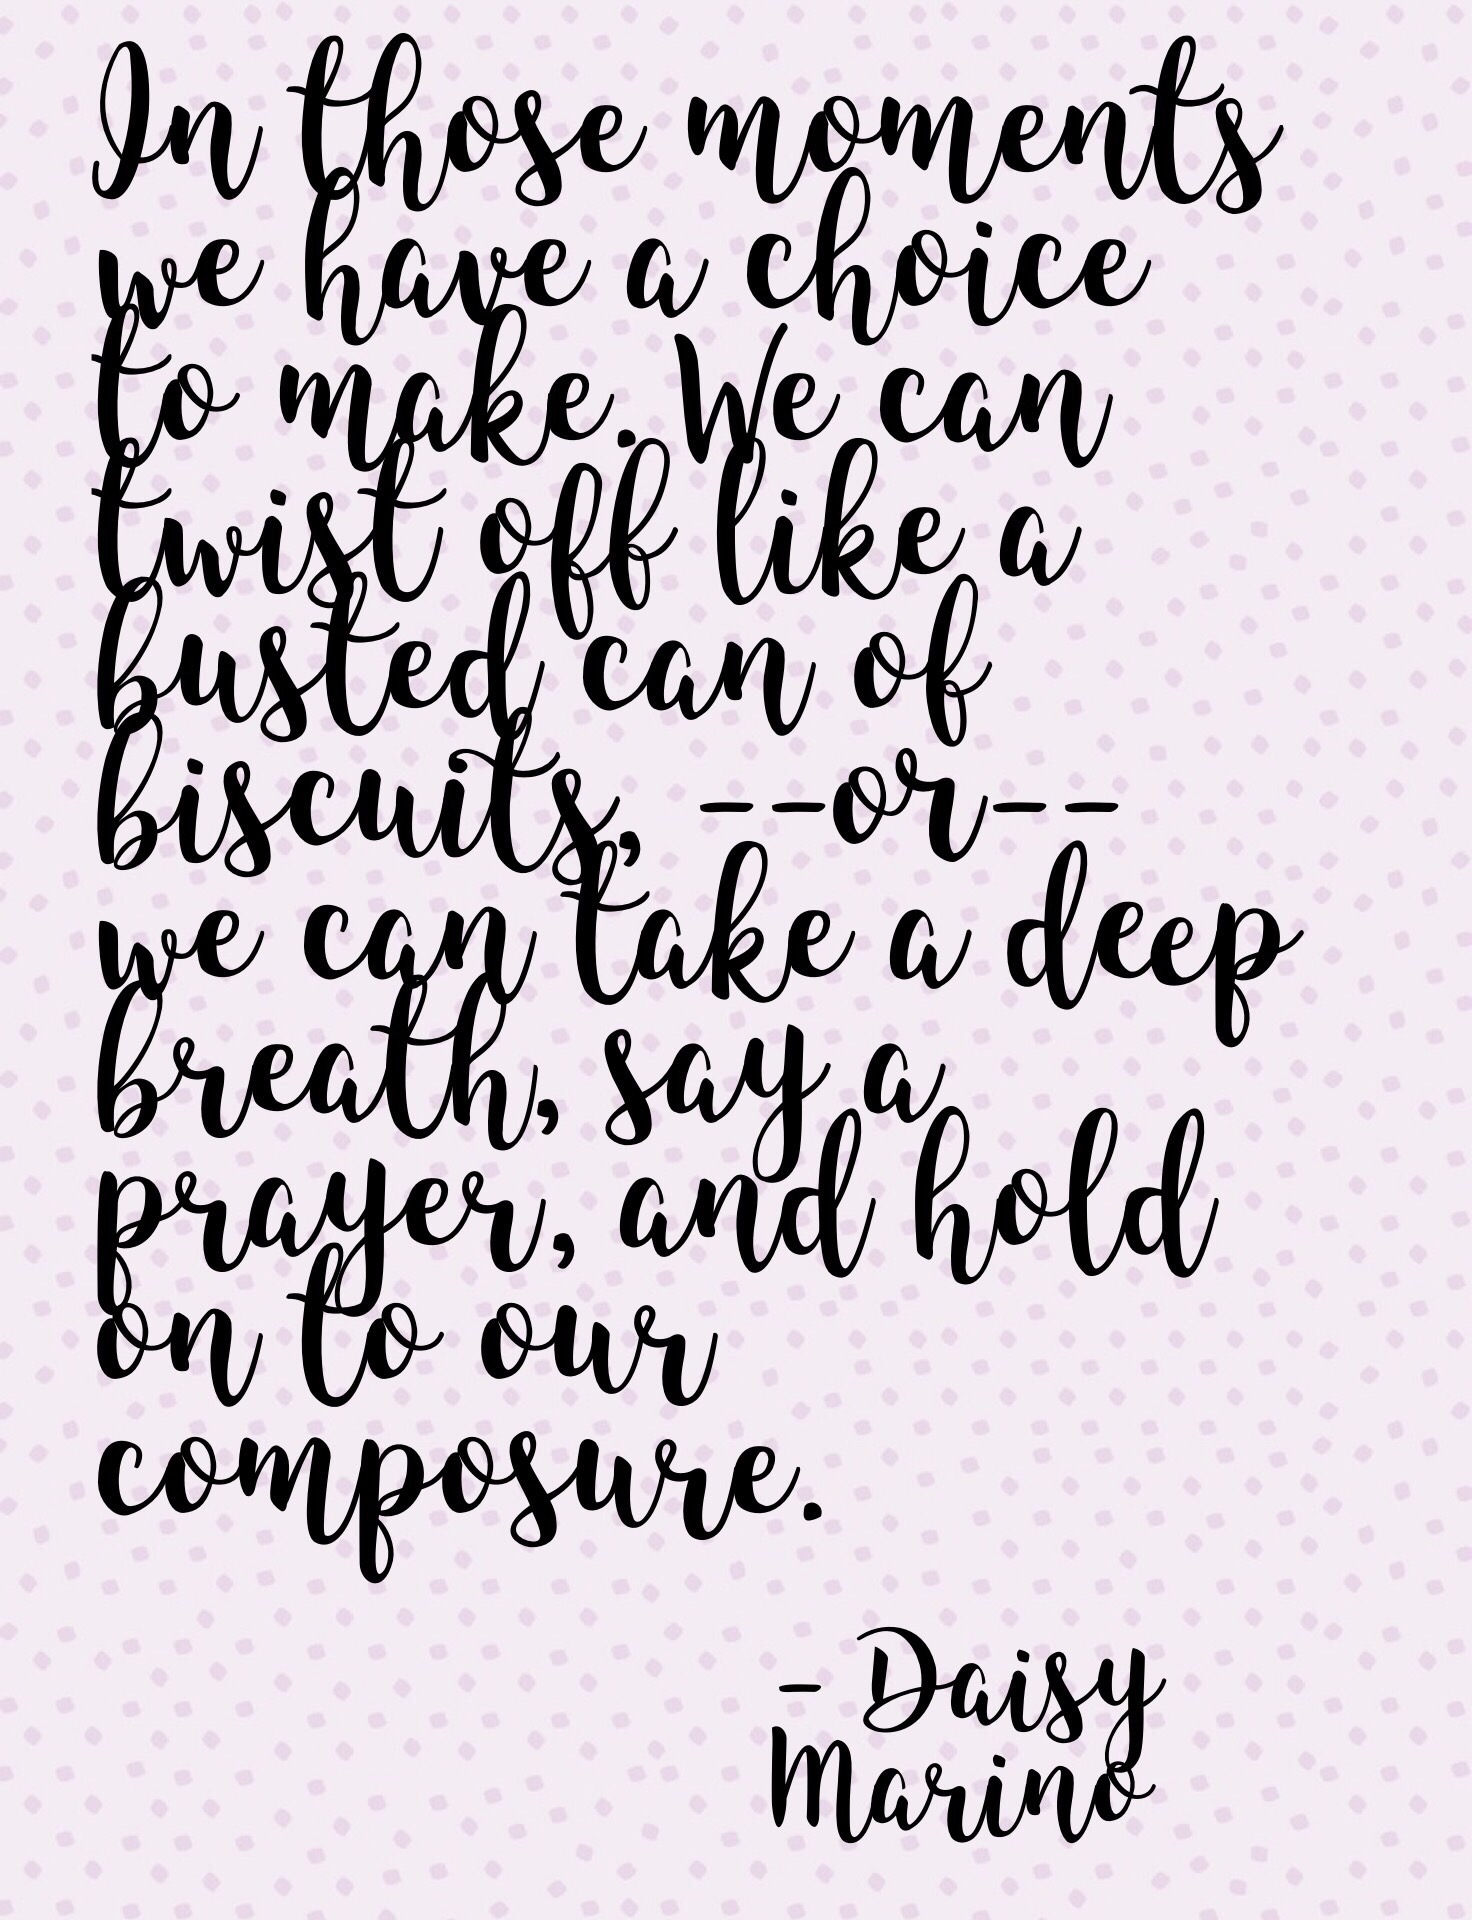 In those moments
we have a choice
to make. We can
twist off like a
busted can of
biscuits, --or--
we can take a deep
breath, say a
prayer, and hold
on to our
composure.
- Daisy
Marino